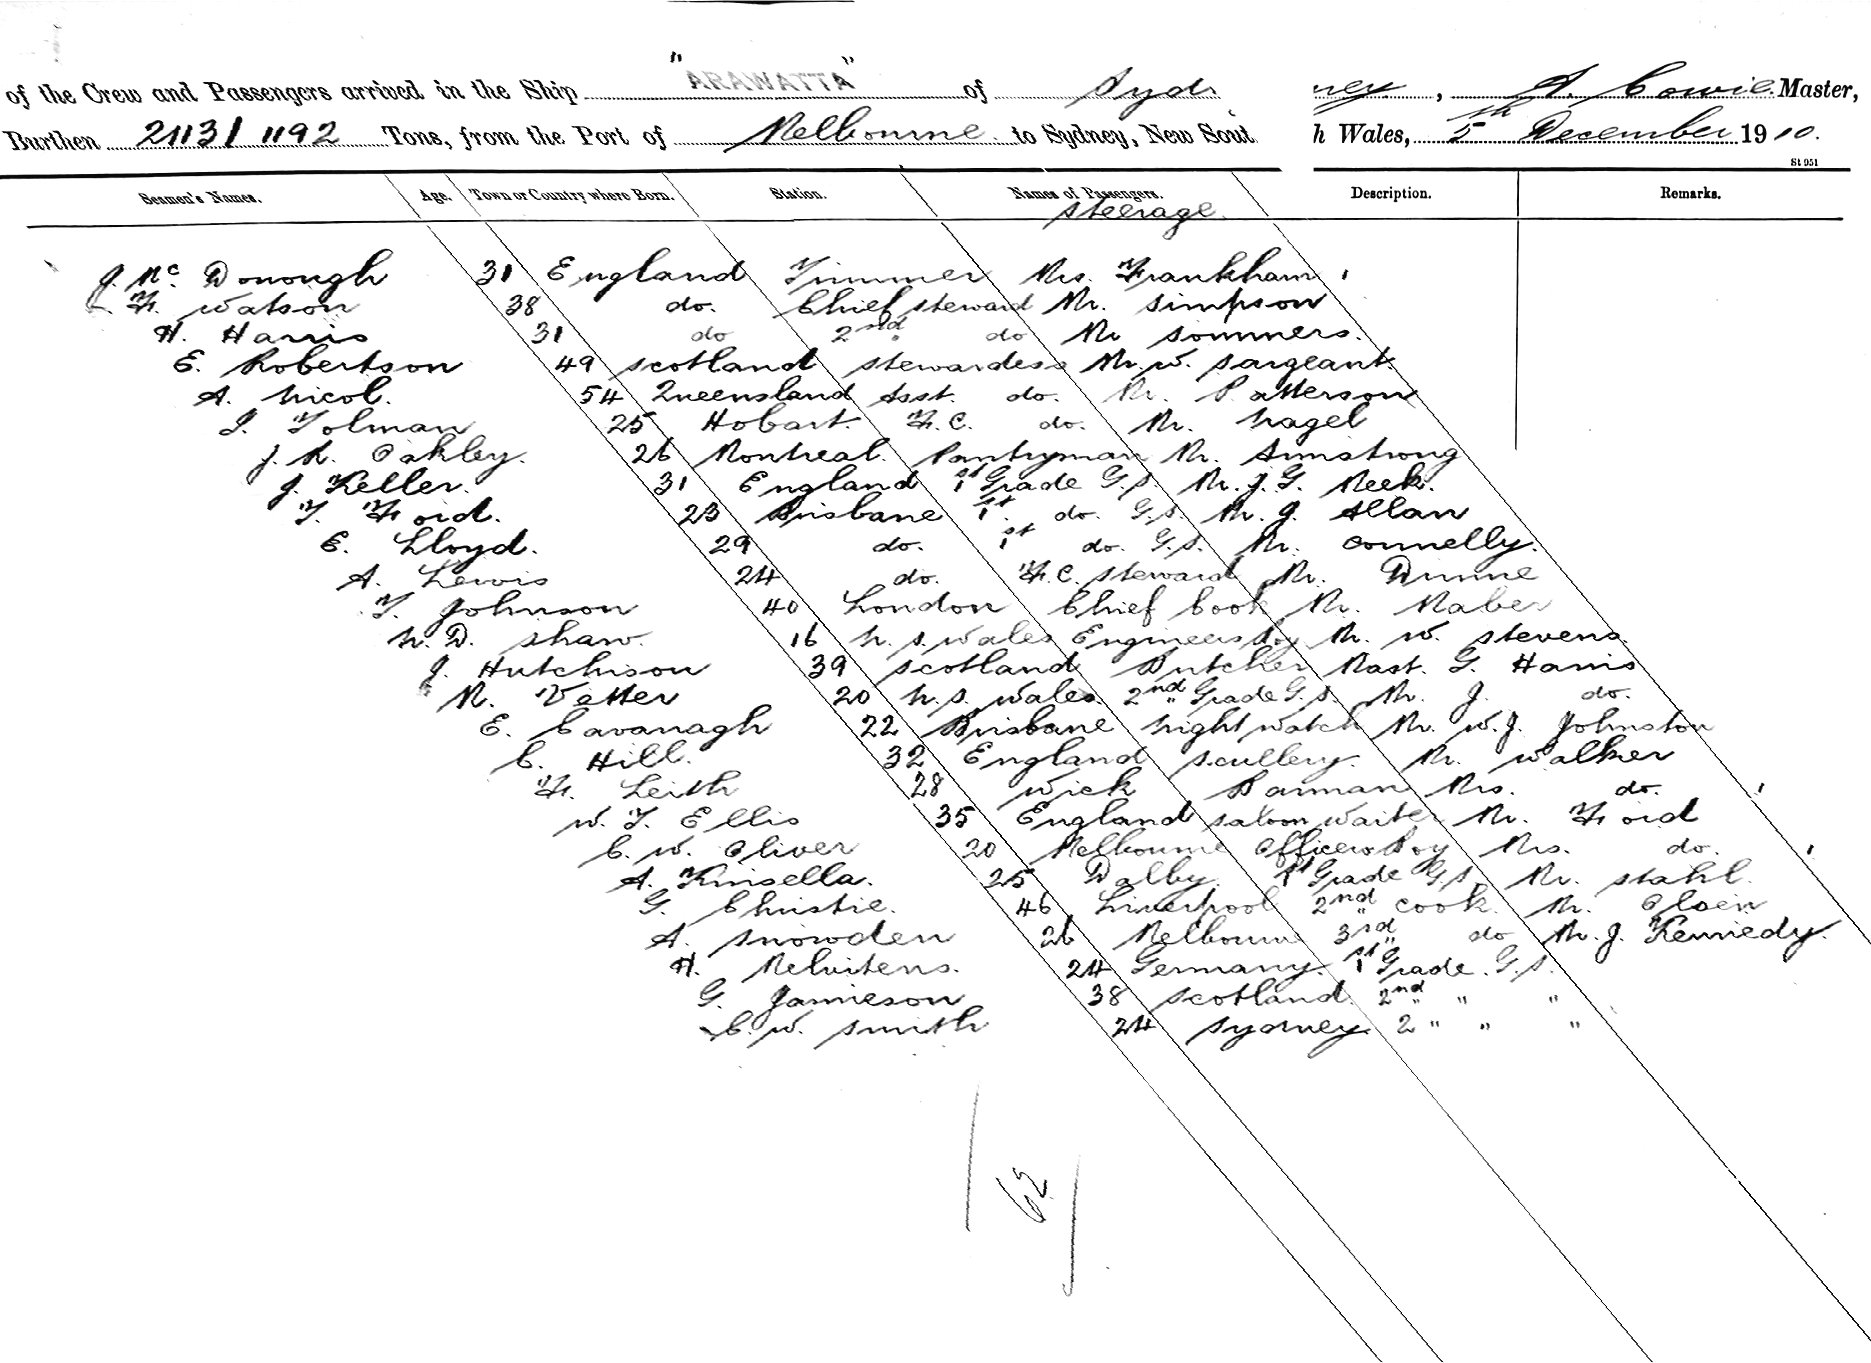 of the Crew and Passengers arrived in the Ship "ARAWATTA" of Sydney, A. Cowie. Master,
Burthen 2113/1192 Tons, from the Port of Melbourne. to Sydney, New South Wales, 5th December 1910.
St 951
Seamen's Names. Age. Town or Country where Born. Station. Names of Passengers. Description. Remarks.
Steerage.
J. Mc. Donough 31 England Trimmer Mrs. Frankham
F. Watson 38 do. Chief Steward Mr. Simpson
H. Harris 31 do 2nd do Mr Sommers.
E. Robertson 49 Scotland Stewardess Mr. W. Sargeant.
A. Nicol. 54 Queensland Asst. do. Mr. Patterson
I. Tolman 25 Hobart. F.C. do. Mr. Nagel
J. R. Oakley. 26 Montreal. Pantryman Mr. Armstrong
J. Keller. 31 England 1st Grade G.S. Mr. J. G. Meek.
T. Ford. 23 Brisbane 1st do. G.S. Mr. J. Allan
E. Lloyd. 29 do. 1st do. G.S. Mr. Connelly.
A. Lewis 24 do. F.C. Steward Mr. Dunne
T. Johnson 40 London Chief Cook Mr. Maber
N. D. Shaw. 16 N. S. Wales Engineers Boy Mr. W. Stevens.
J. Hutchison 39 Scotland Butcher Mast. G. Harris
R. Vetter 20 N. S. Wales. 2nd Grade G.S. Mr. J. do.
E. Cavanagh 22 Brisbane Nightwatch Mr. W. J. Johnston
C. Hill. 32 England Scullery. Mr. Walker
F. Leith 28 Wick Barman Mrs. do.
W. T. Ellis 35 England Saloon Waiter Mr. Ford
C. W. Oliver 20 Melbourne Officers Boy Mrs. do.
A. Kinsella. 25 Dalby. 1st Grade G.S. Mr. Stahl.
G. Christie. 46 Liverpool 2nd Cook. Mr. Olsen
A. Snowden 26 Melbourne 3rd do Mr. J. Kennedy.
H. 24 Germany. 1st Grade. G.S.
G. Jamieson 38 Scotland. 2nd " "
C. W. Smith 24 Sydney. 2 " " "
62